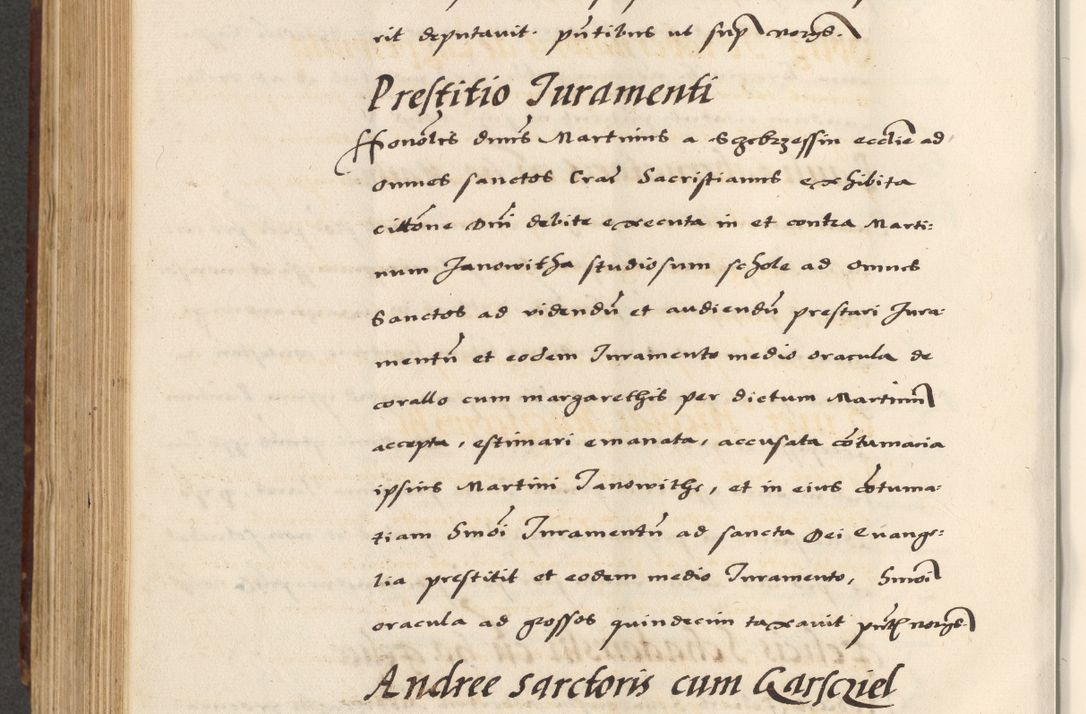 rit deputavit. pñtibus ut sup norgs.
Prestitio Iuramenti
Honolis dnus Martinus a Sczebrzessin ecclie ad
omnes sanctos Crac Sacristianus exhibita
cittone Dni debite executa in et contra Marti:
num Janowitha studiosum schole ad omnes
Sanctos ad videndũ et audiendũ prestari Jura
mentũ et eodem Iuramento medio oracula de
corallo cum margarethis per dictum Martinum
accepta, estimari emanata, accusata cõtumacia
ipsius Martini Janowithe, et in eius cõtuma:
tiam Smoi Iuramentũ ad sancta Dei Evange:
lia prestitit et eodem medio Iuramento, Smoi
oracula ad grossos quindecim taxavit pñt norgs.
Andree sarctoris cum Garscziel